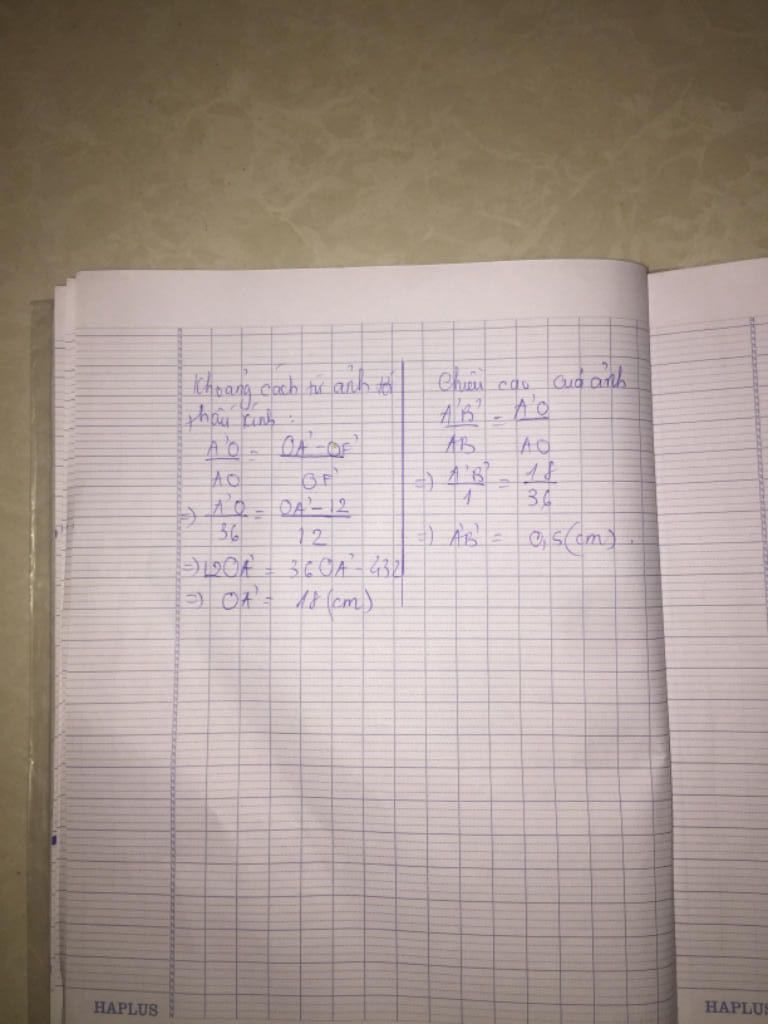 Khoảng cách từ ảnh tới
thấu kính :
A'O/AO = OA'-OF'/OF'
=) A'O/36 = OA'-12/12
=) 12OA' = 36OA' - 432
=) OA' = 18 (cm)
Chiều cao của ảnh
A'B'/AB = A'O/AO
=) A'B'/1 = 18/36
=) A'B' = 0,5 (cm) .
HAPLUS
HAPLUS